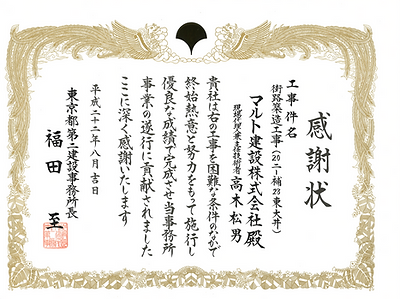 感謝状
工事件名
街路築造工事(20二ー補23東大井)
マルト建設株式会社殿
現場代理人兼主任技術者 高木松男
貴社は右の工事を困難な条件のなかで
終始熱意と努力をもって施行し
優良な成績で完成させ当事務所
事業の遂行に貢献されました
ここに深く感謝いたします
平成二十二年八月吉日
東京都第二建設事務所長
福田至